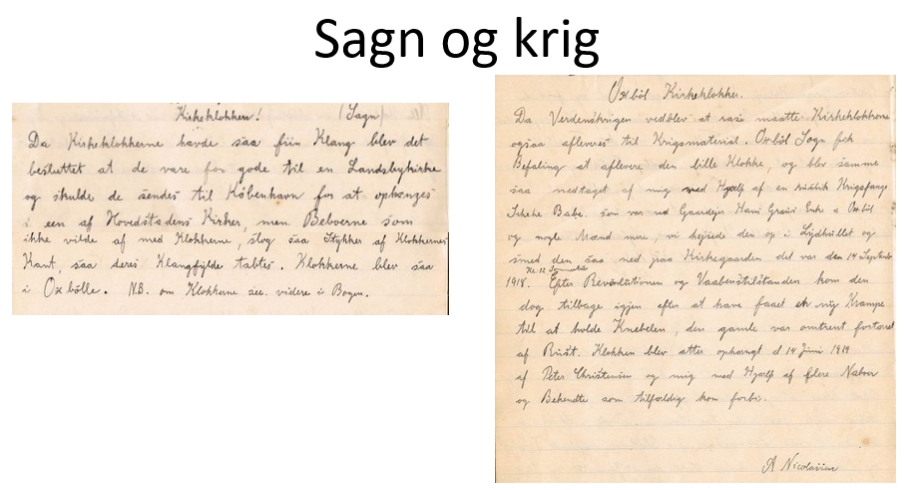 Sagn og krig
Kirkeklokken! (Sagn)
Da Kirkeklokkerne havde saa fiin Klang blev det
besluttet at de vare for gode til en Landsbykirke
og skulde de sendes til København for at ophænges
i een af Hovedstadens Kirker, men Beboerne som
ikke vilde af med Klokkerne, slog saa Stykker af Klokkernes
Kant, saa deres Klangfylde tabtes. Klokkerne blev saa
i Oxbölle. N.B. om Klokkerne see videre i Bogen.
Oxböl Kirkeklokke.
Da Verdenskrigen vedblev at rase maatte Kirkeklokkerne
ogsaa afleveres til Krigsmaterial. Oxböl Sogn fik
Befaling at aflevere den lille Klokke, og blev samme
saa nedtaget af mig ved Hjælp af en Krigsfange
som var ved Gaardejer Hans Enke i Oxböl
og nogle Mænd mere, vi hejsede den op i Lydhullet og
smed den saa ned paa Kirkegaarden det var den 14 September
Kl. 12
1918. Efter Revolutionen og Vaabenstilstanden kom den
dog tilbage igjen efter at have faaet en ny Krampe
til at holde Knebelen, den gamle var omtrent fortæret
af Rust. Klokken blev atter ophængt d 14 Juni 1919
af Peter Christensen og mig med Hjælp af flere Naboer
og Bekendte som tilfældig kom forbi.
A Nicolaisen